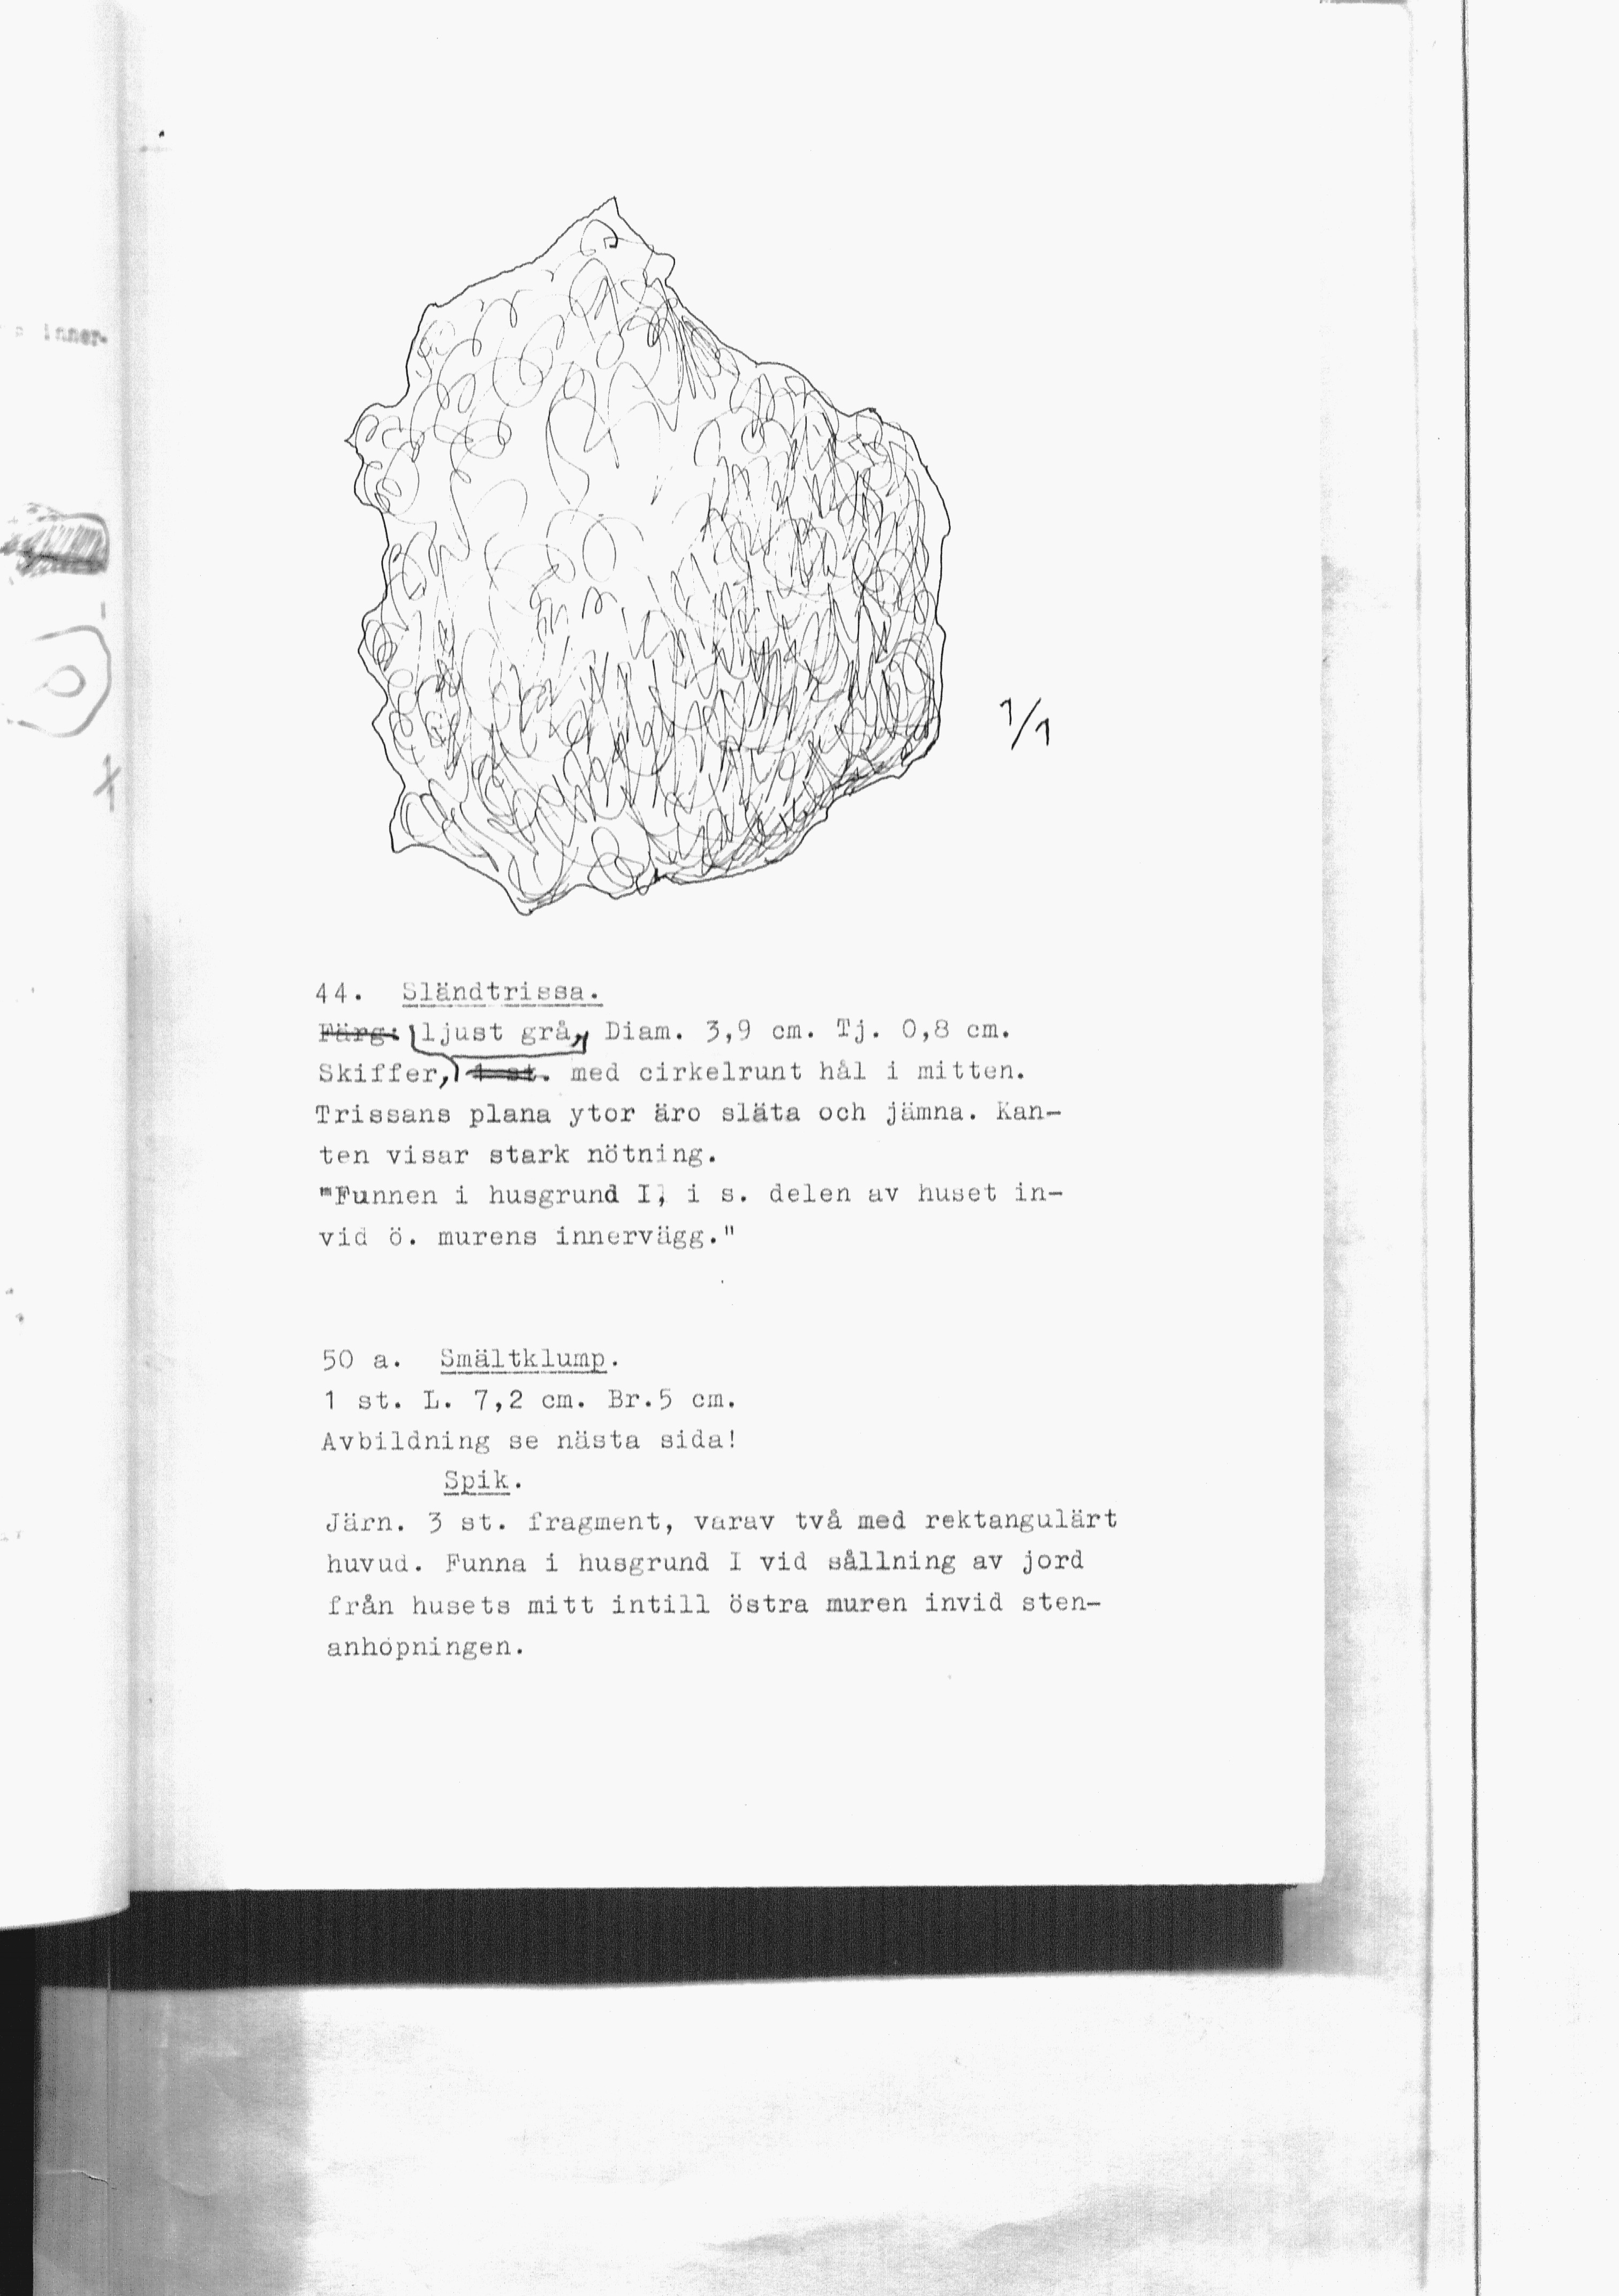 inner-
1/1
44. Sländtrissa.
Färg: ljust grå, Diam. 3,9 cm. Tj. 0,8 cm.
Skiffer, 1 st. med cirkelrunt hål i mitten.
Trissans plana ytor äro släta och jämna. Kan-
ten visar stark nötning.
"Funnen i husgrund I, i s. delen av huset in-
vid ö. murens innervägg."
50 a. Smältklump.
1 st. L. 7,2 cm. Br.5 cm.
Avbildning se nästa sida!
Spik.
Järn. 3 st. fragment, varav två med rektangulärt
huvud. Funna i husgrund I vid sållning av jord
från husets mitt intill östra muren invid sten-
anhopningen.